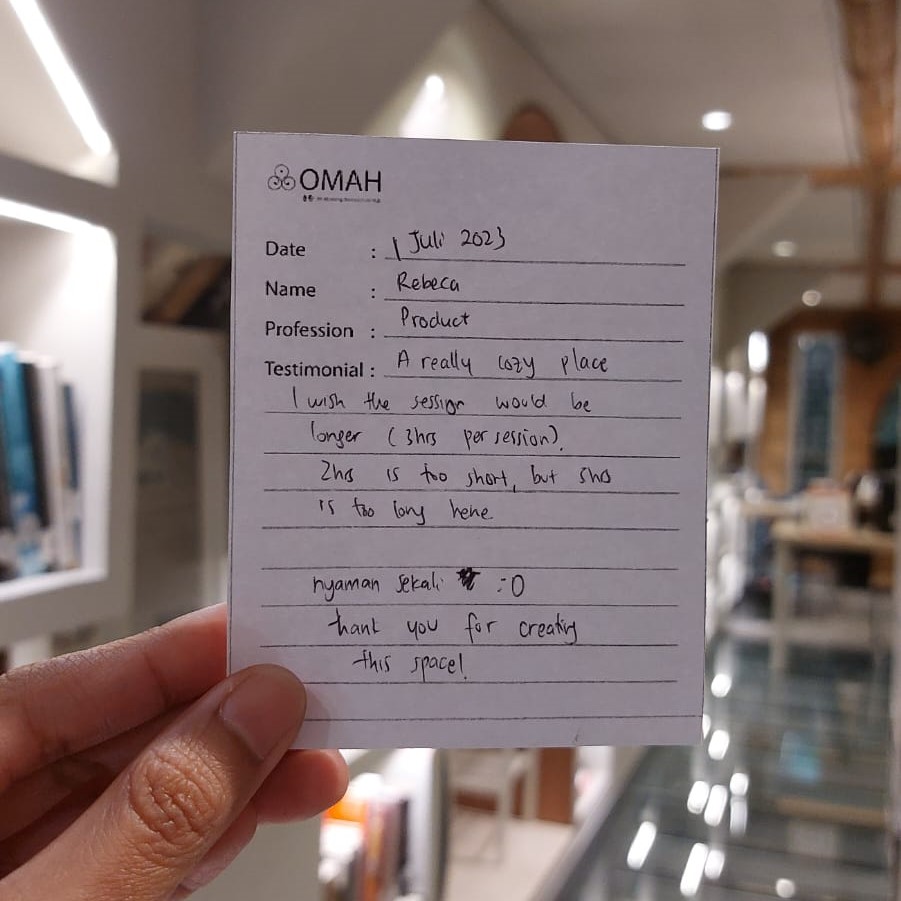 OMAH
Date : 1 Juli 2023
Name : Rebeca
Profession : Product
Testimonial : A really cozy place
I wish the session would be
longer (3hrs per session).
2hrs is too short, but 5hrs
is too long hehe
nyaman sekali :O
thank you for creating
this space!